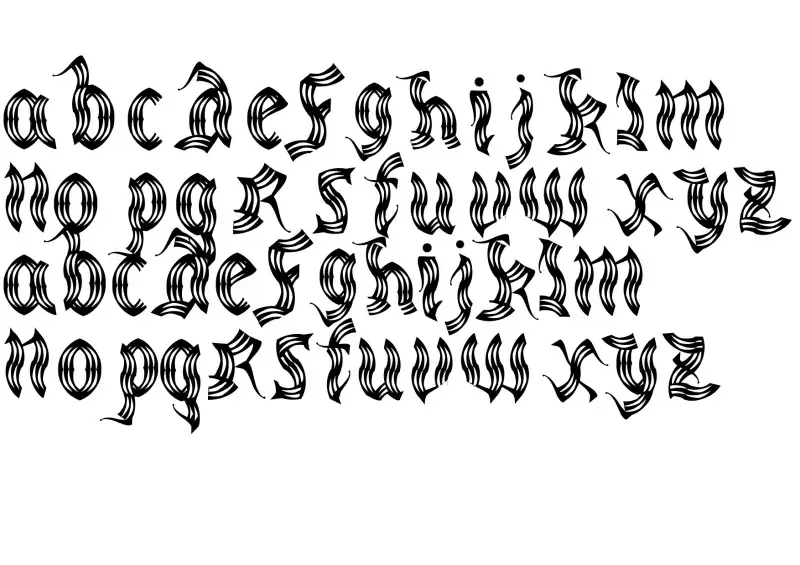 abcdefghijklm
nopqrstuvwxyz
abcdefghijklm
nopqrstuvwxyz